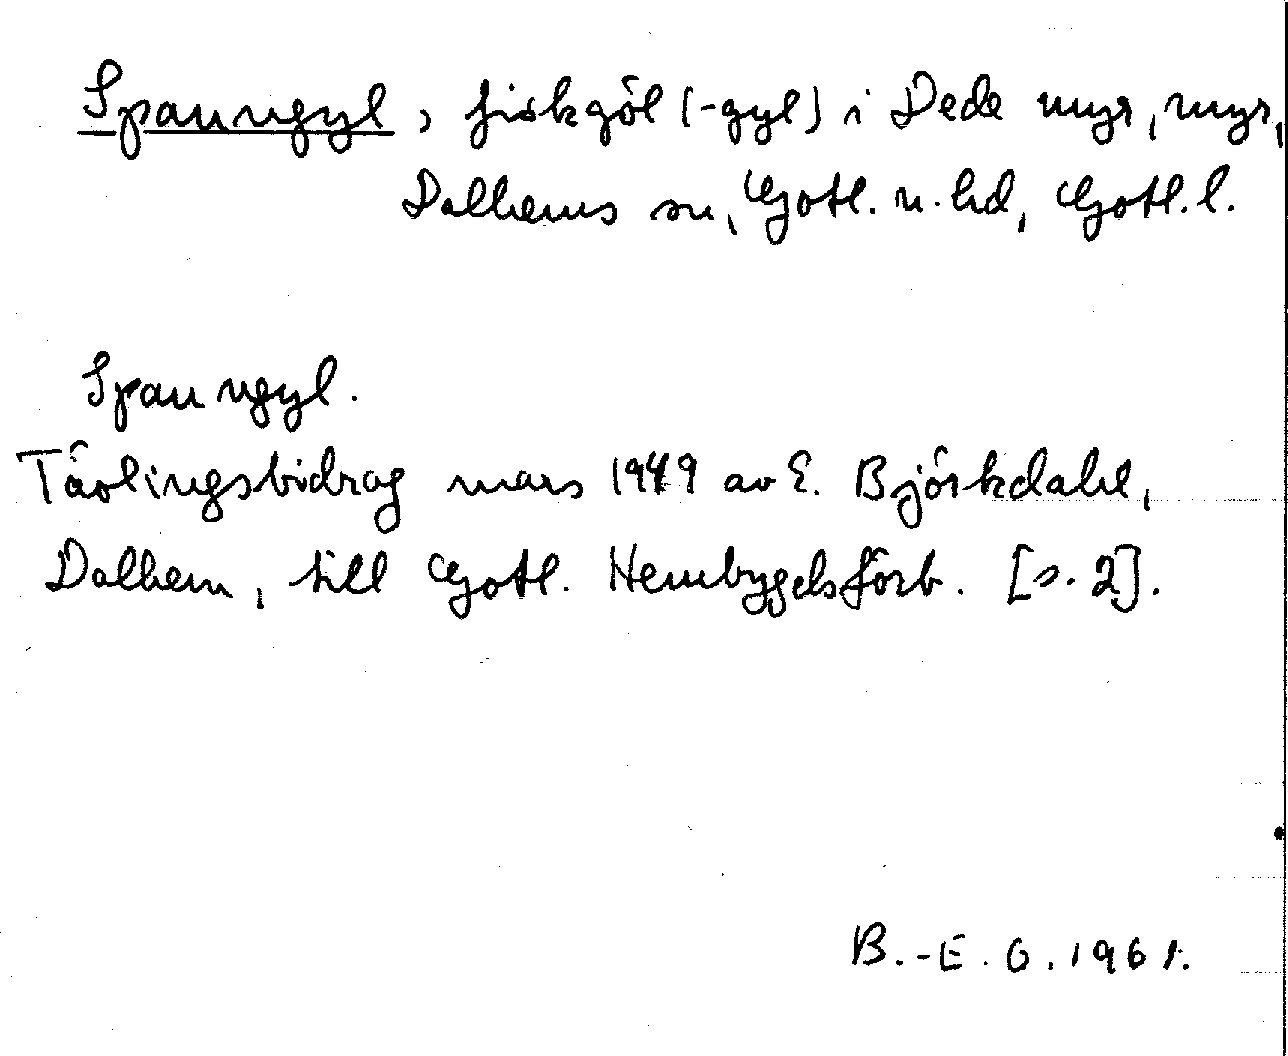 Spaungyl, fiskgöl (-gyl) i Dede myr, myr,
Dalhems sn, Gotl. n. hd, Gotl. l.
Spaungyl.
Tävlingsbidrag mars 1949 av E. Björkdahl,
Dalhem, till Gotl. Hembygdsförb. [s. 2].
B.-E. O. 1961.